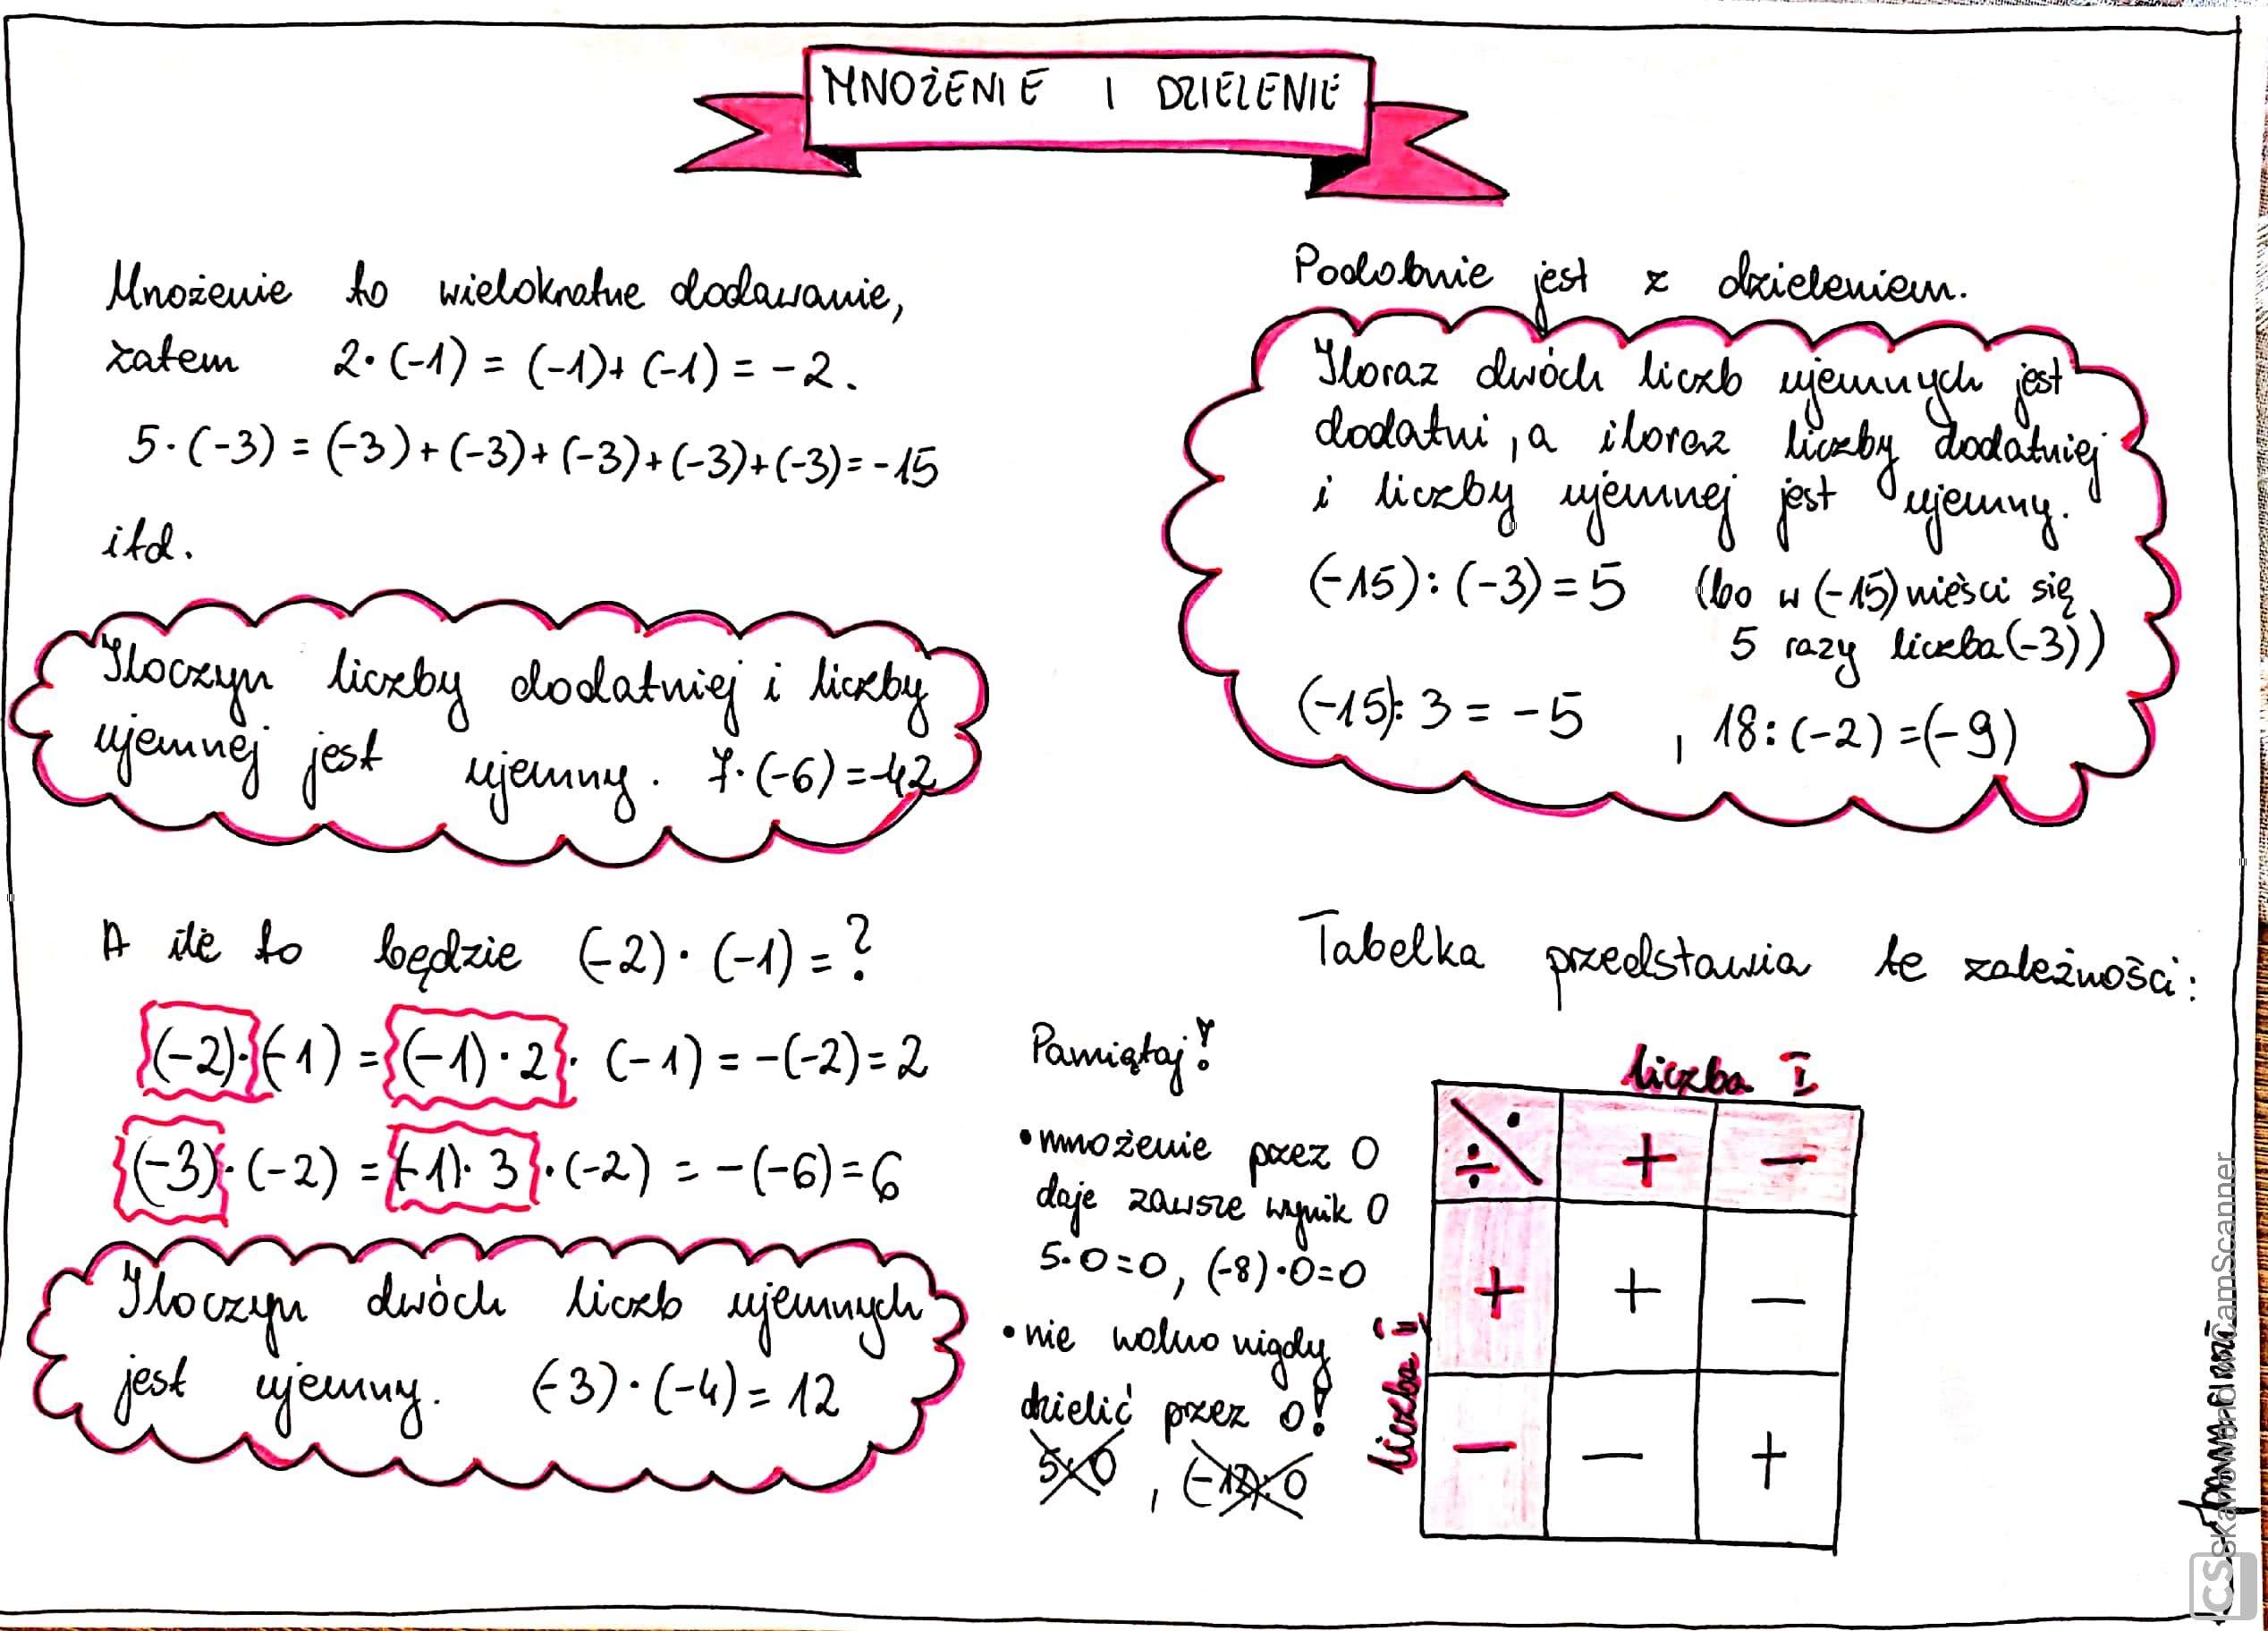 MNOŻENIE I DZIELENIE
Mnożenie to wielokrotne dodawanie,
zatem 2·(-1) = (-1)+(-1) = -2.
5·(-3) = (-3)+(-3)+(-3)+(-3)+(-3)=-15
itd.
Iloczyn liczby dodatniej i liczby
ujemnej jest ujemny. 7·(-6)=-42
A ile to będzie (-2)·(-1)=?
(-2)·(-1) = (-1)·2·(-1) = -(-2)=2
(-3)·(-2) = (-1)·3·(-2) = -(-6)=6
Iloczyn dwóch liczb ujemnych
jest ujemny. (-3)·(-4)=12
Podobnie jest z dzieleniem.
Iloraz dwóch liczb ujemnych jest
dodatni, a iloraz liczby dodatniej
i liczby ujemnej jest ujemny.
(-15):(-3)=5 (bo w (-15) mieści się
5 razy liczba (-3))
(-15):3 = -5 , 18:(-2)=(-9)
Pamiętaj!
• mnożenie przez 0
daje zawsze wynik 0
5·0=0, (-8)·0=0
• nie wolno nigdy
dzielić przez 0!
5:0 , (-12):0
Tabelka przedstawia te zależności:
liczba I
÷ · + -
liczba II
+ + -
- - +
CS Skanowano w CamScanner